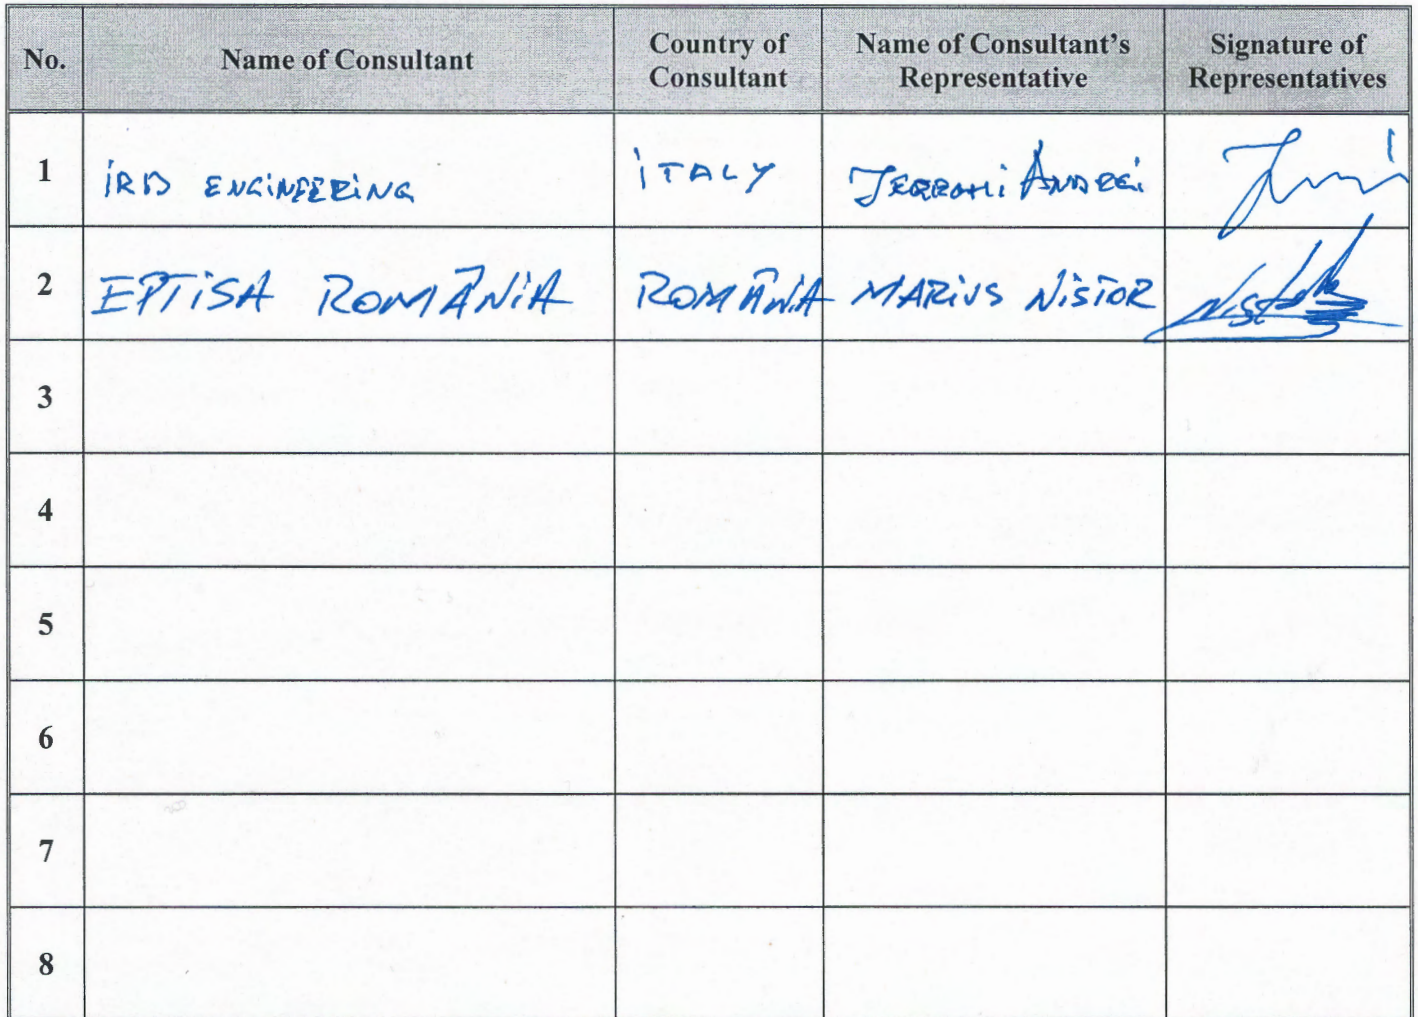 No. Name of Consultant Country of Consultant Name of Consultant's Representative Signature of Representatives
1 iRD ENGiNEERiNG iTALY ANDREi
2 EPTiSA ROMÂNiA ROMÂNiA MARiUS NiSTOR
3
4
5
6
7
8